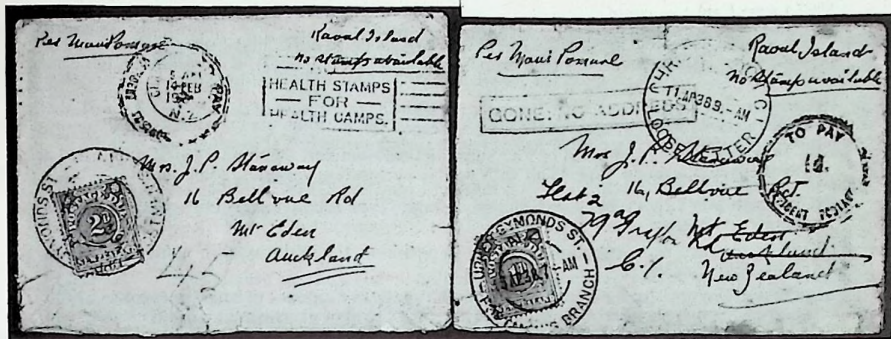 Per Maui Pomare
Raoul Island
no stamps available
FEB
N.Z.
HEALTH STAMPS
FOR
HEALTH CAMPS.
Mrs. J. P. Stanaway
16 Bellvue Rd
Mt Eden
Auckland
2d
45
Per Maui Pomare
Raoul Island
no stamps available
GONE, NO ADDRESS
11 AP38 9 - AM
LETTER
TO PAY
Mrs J. P. Stanaway
Flat 2
16, Bellvue Rd.
Mt Eden
Auckland
C.1.
New Zealand
UPPER SYMONDS ST.
- AM
BRANCH